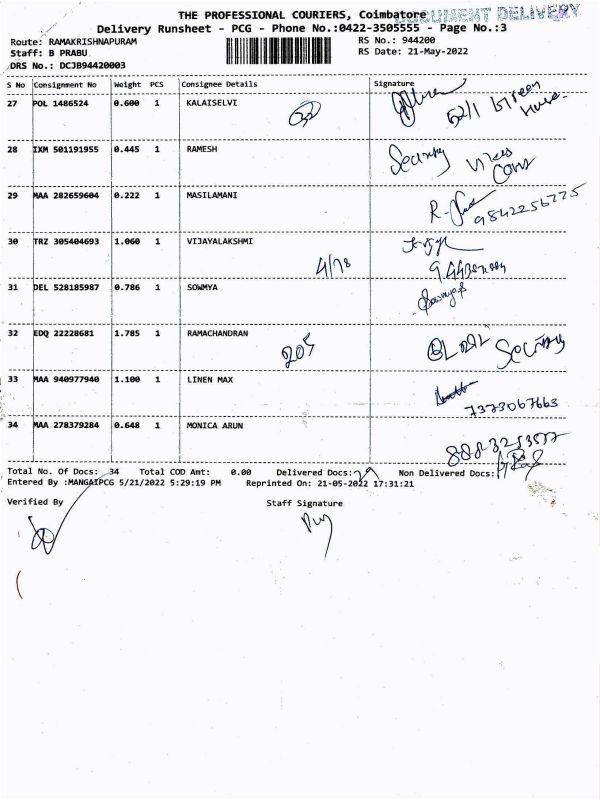 THE PROFESSIONAL COURIERS, Coimbatore
DOCUMENT DELIVERY
Delivery Runsheet - PCG - Phone No.:0422-3505555 - Page No.:3
Route: RAMAKRISHNAPURAM RS No.: 944200
Staff: B PRABU RS Date: 21-May-2022
DRS No.: DCJB94420003
S No Consignment No Weight PCS Consignee Details Signature
27 POL 1486524 0.600 1 KALAISELVI
28 IXM 501191955 0.445 1 RAMESH Security
29 MAA 282659604 0.222 1 MASILAMANI
9842256725
30 TRZ 305404693 1.060 1 VIJAYALAKSHMI
4/78
31 DEL 528185987 0.786 1 SOWMYA Sowmya
32 EDQ 22228681 1.785 1 RAMACHANDRAN
205 Security
33 MAA 940977940 1.100 1 LINEN MAX
7373067663
34 MAA 278379284 0.648 1 MONICA ARUN
Total No. Of Docs: 34 Total COD Amt: 0.00 Delivered Docs: 29 Non Delivered Docs:
Entered By :MANGAIPCG 5/21/2022 5:29:19 PM Reprinted On: 21-05-2022 17:31:21
Verified By Staff Signature